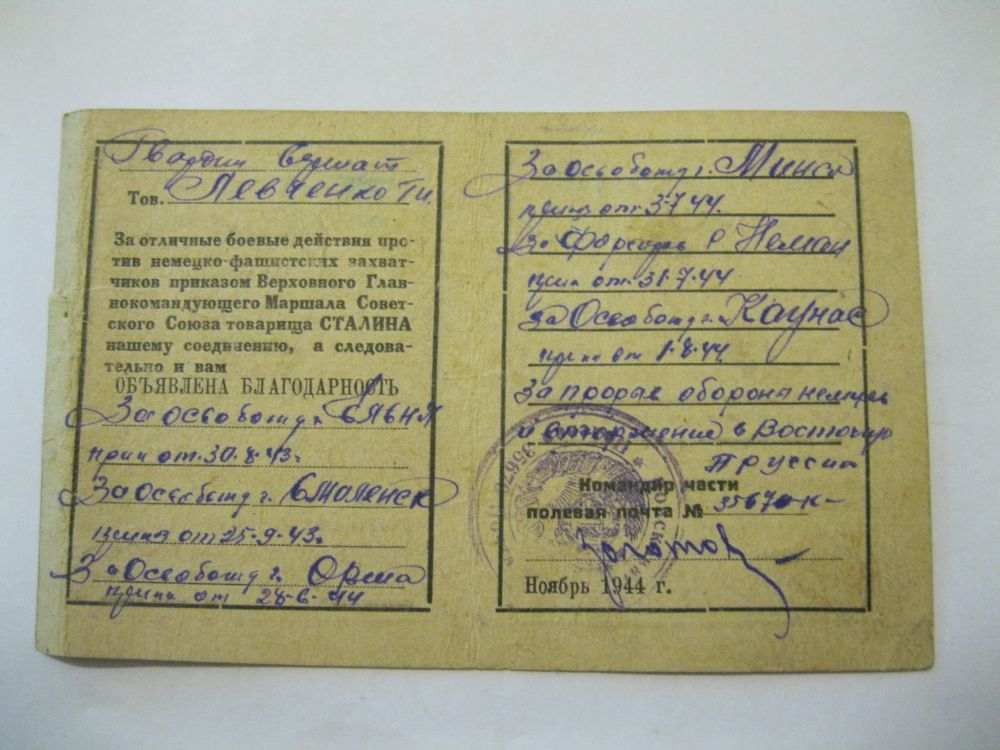 Гвардии Сержант
Тов. Левченко Т.И.
За отличные боевые действия про-
тив немецко-фашистских захват-
чиков приказом Верховного Глав-
нокомандующего Маршала Совет-
ского Союза товарища СТАЛИНА
нашему соединению, а следова-
тельно и вам
ОБЪЯВЛЕНА БЛАГОДАРНОСТЬ
За освобожд г. Ельня
от 30.8.43г.
За освобожд г. Смоленск
от 25.9.43г.
За Освобожд г. Орша
от 28-6-44
За освобожд г. Минск
от 3.7.44.
За р Неман
от 31.7.44
За Освобожд г. Каунас
от 1.8.44
За прорыв оборона немцев
и вторжение в Восточную
Пруссию
Командир части
полевая почта № 35670-к-
Ноябрь 1944 г.